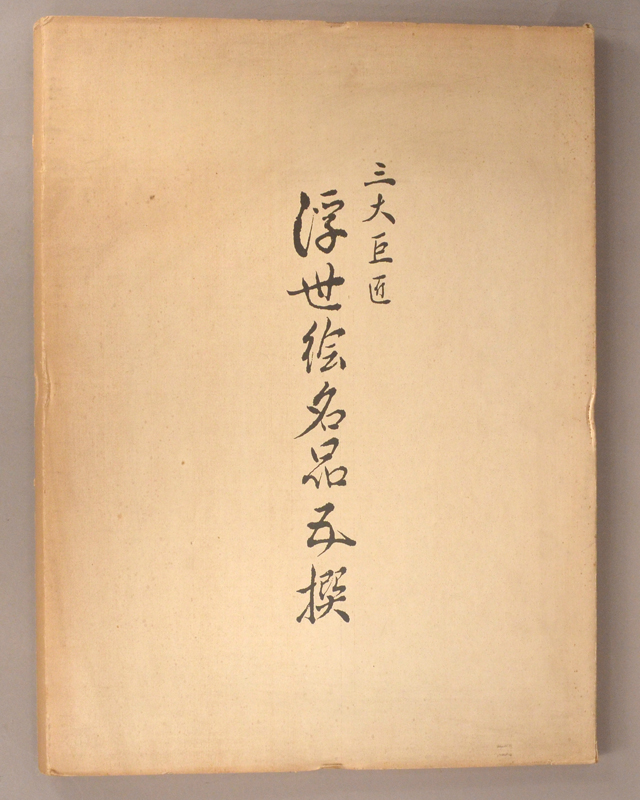 三大巨匠
浮世絵名品五撰